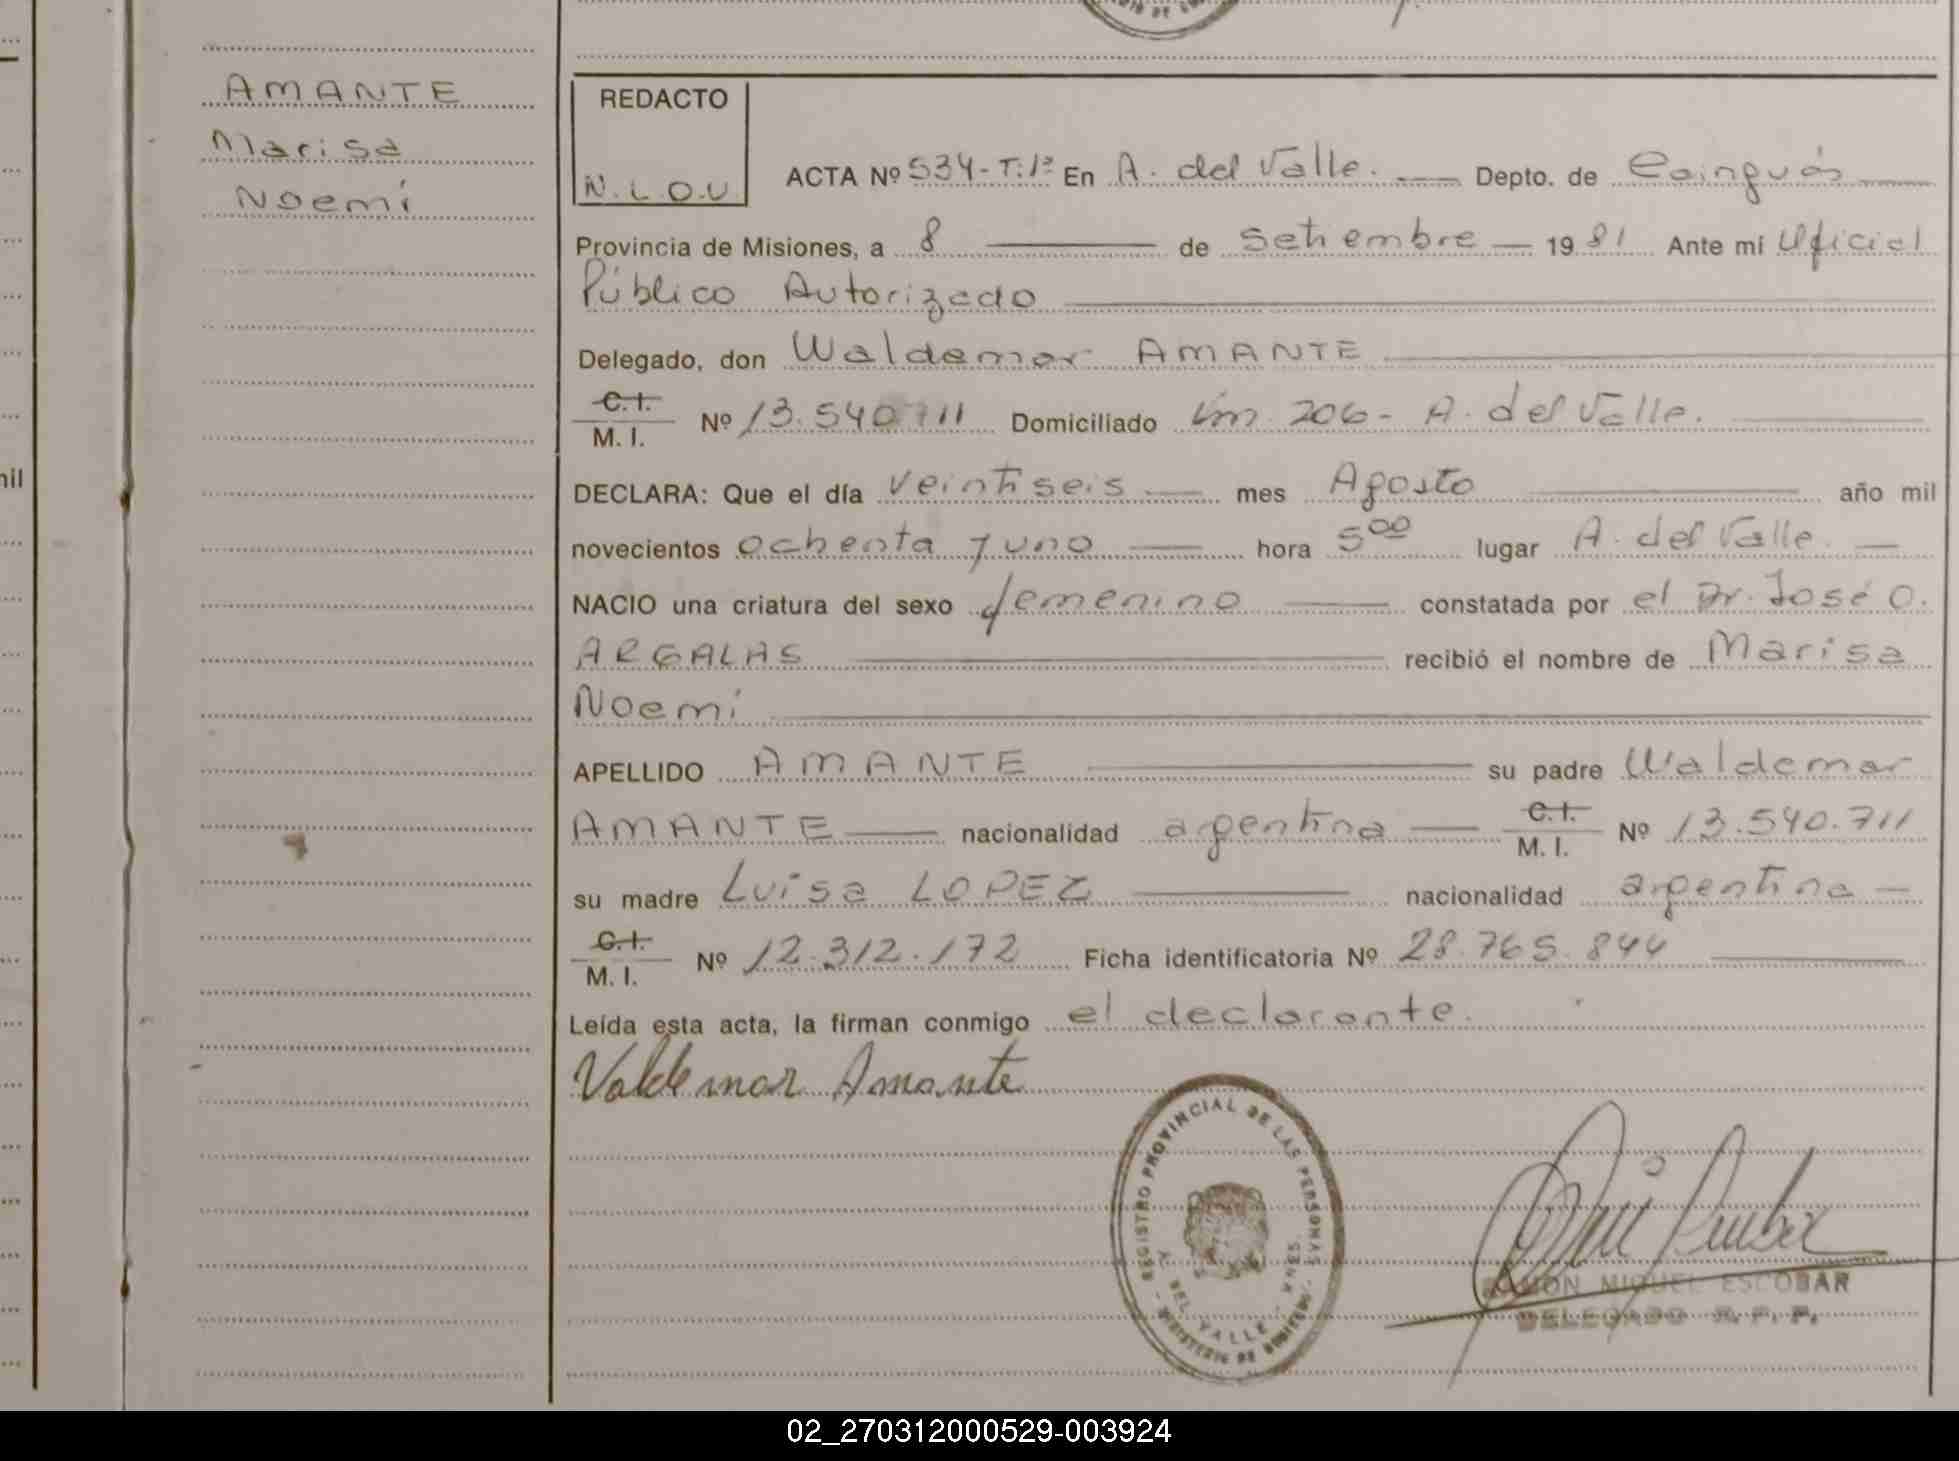 AMANTE
Marisa
Noemí
REDACTO
N.L.O.V.
ACTA Nº 534-T:1º En A. del Valle. Depto. de Cainguás
Provincia de Misiones, a 8 de Setiembre 1981 Ante mi Oficial
Público Autorizado
Delegado, don Waldemar AMANTE
C.I. M.I. Nº 13.540.711 Domiciliado Km. 206- A. del Valle.
DECLARA: Que el día veintiseis mes Agosto año mil
novecientos ochenta y uno hora 5⁰⁰ lugar A. del Valle.
NACIO una criatura del sexo femenino constatada por el Dr. José O.
ARGALAS recibió el nombre de Marisa
Noemí
APELLIDO AMANTE su padre Waldemar
AMANTE nacionalidad argentina C.I. M.I. Nº 13.540.711
su madre Luisa LOPEZ nacionalidad argentina
C.I. M.I. Nº 12.312.172 Ficha identificatoria Nº 28.765.844
Leída esta acta, la firman conmigo el declarante.
Valdemar Amante
REGISTRO PROVINCIAL DE LAS PERSONAS
A. DEL VALLE - MNES.
MINISTERIO DE GOBIERNO
RAMON MIGUEL ESCOBAR
DELEGADO R. P. P.
mil
02_270312000529-003924